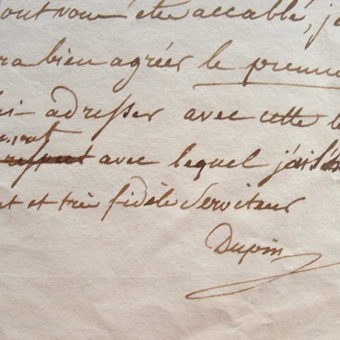 tout vous été accablé, j
ra bien agréer le premier
lui adresser avec cette le
respect avec lequel j'ai l'h
et très fidèle Serviteur
Dupin